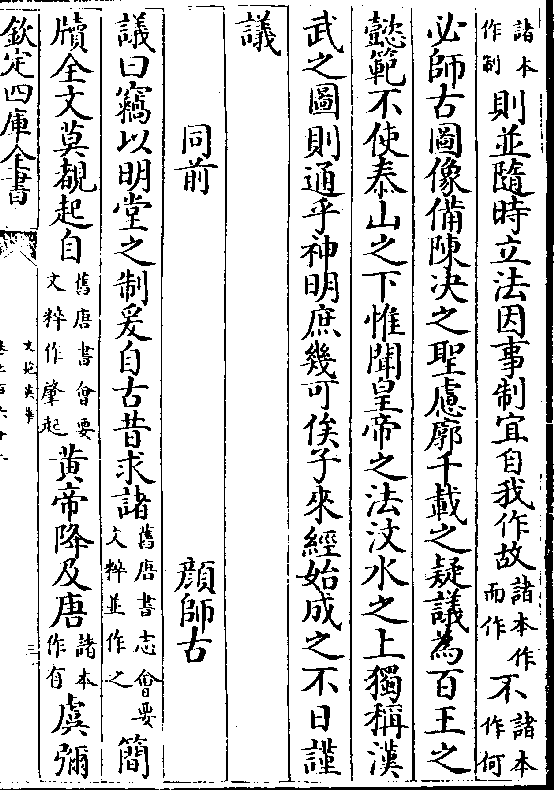 諸本作制則並隨時立法因事制宜自我作故諸本作而作不諸本作何
必師古圖像備陳决之聖慮廓千載之疑議為百王之
懿範不使泰山之下惟聞皇帝之法汶水之上獨稱漢
武之圖則通乎神明庶幾可俟子來經始成之不日謹
議
同前 顔師古
議曰竊以明堂之制爰自古昔求諸舊唐書志會要文粹並作之簡
牘全文莫覩起自舊唐書會要文粹作肇起黄帝降及唐諸本作有虞彌
欽定四庫全書
文苑英華